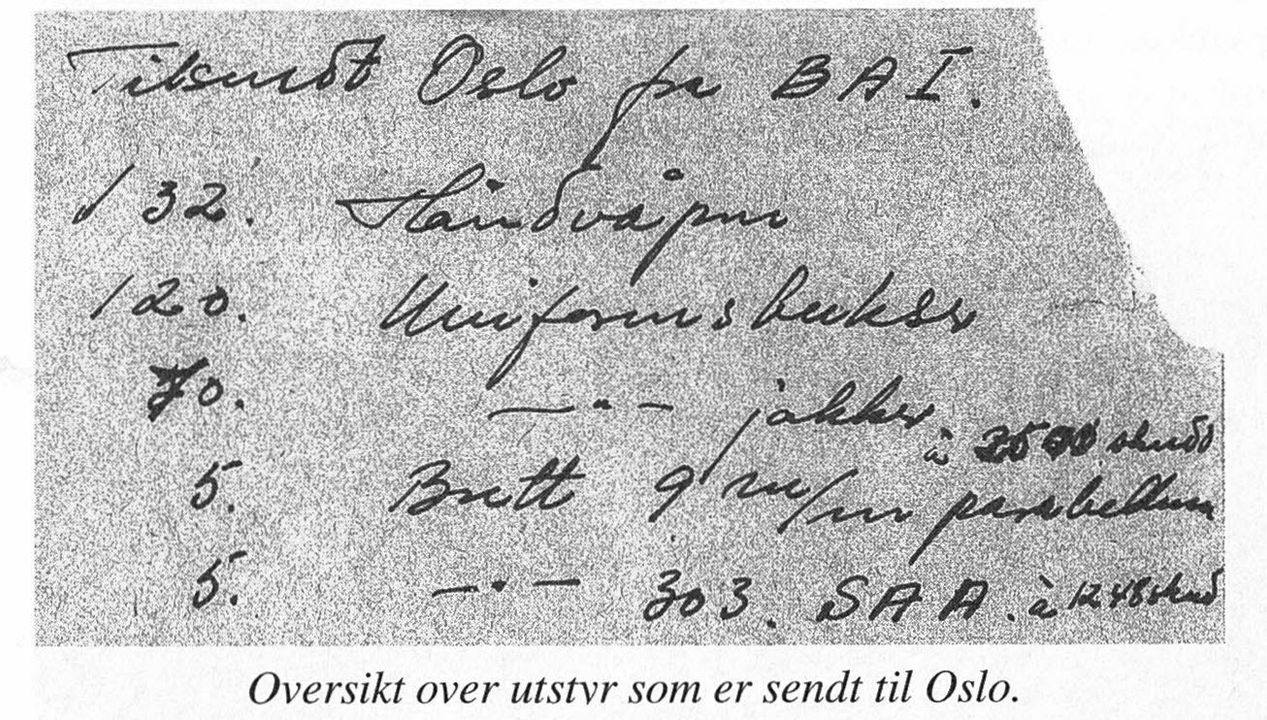 Tilsendt Oslo fra BA I.
132. Håndvåpen
120. Uniformsbukser
70. —"— jakker.
5. Brett 9 m/m parabellum à 2500 skudd
5. —"— 303. SAA. à 1248 skud
Oversikt over utstyr som er sendt til Oslo.